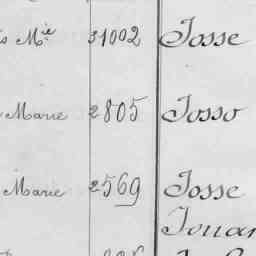 Mie 31002 Josse
Marie 2805 Josso
Marie 2569 Josse